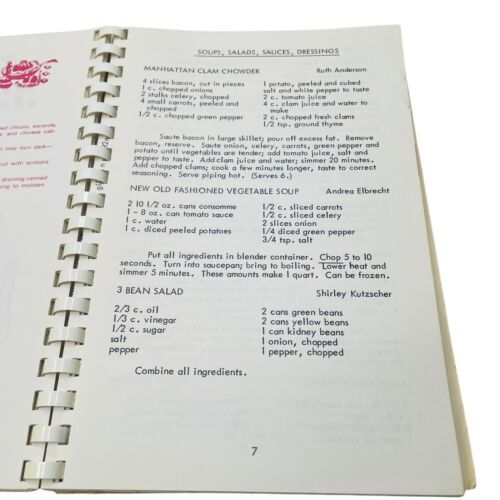 d chicory, escarole,
and chinese cab-
may turn dark—
ut with scissors.
dressing canned
ning to moisten
SOUPS, SALADS, SAUCES, DRESSINGS
MANHATTAN CLAM CHOWDER Ruth Anderson
4 slices bacon, cut in pieces 1 potato, peeled and cubed
1 c. chopped onions salt and white pepper to taste
2 stalks celery, chopped 2 c. tomato juice
4 small carrots, peeled and 4 c. clam juice and water to
chopped make
1/2 c. chopped green pepper 2 c. chopped fresh clams
1/2 tsp. ground thyme
Saute bacon in large skillet; pour off excess fat. Remove
bacon, reserve. Saute onion, celery, carrots, green pepper and
potato until vegetables are tender; add tomato juice, salt and
pepper to taste. Add clam juice and water; simmer 20 minutes.
Add chopped clams; cook a few minutes longer, taste to correct
seasoning. Serve piping hot. (Serves 6.)
NEW OLD FASHIONED VEGETABLE SOUP Andrea Elbrecht
2 10 1/2 oz. cans consomme 1/2 c. sliced carrots
1 - 8 oz. can tomato sauce 1/2 c. sliced celery
1 c. water 2 slices onion
1 c. diced peeled potatoes 1/4 diced green pepper
3/4 tsp. salt
Put all ingredients in blender container. Chop 5 to 10
seconds. Turn into saucepan; bring to boiling. Lower heat and
simmer 5 minutes. These amounts make 1 quart. Can be frozen.
3 BEAN SALAD Shirley Kutzscher
2/3 c. oil 2 cans green beans
1/3 c. vinegar 2 cans yellow beans
1/2 c. sugar 1 can kidney beans
salt 1 onion, chopped
pepper 1 pepper, chopped
Combine all ingredients.
7